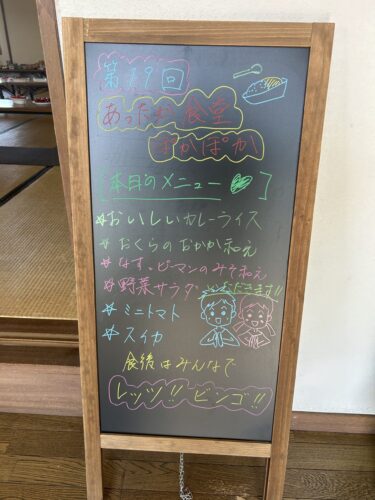 第19回
あったか食堂
ぽかぽか
[本日のメニュー]
*おいしいカレーライス
*おくらのおかか和え
*なす、ピーマンのみそ和え
*野菜サラダ
いただきます!!
*ミニトマト
*スイカ
食後はみんなで
レッツ!! ビンゴ!!